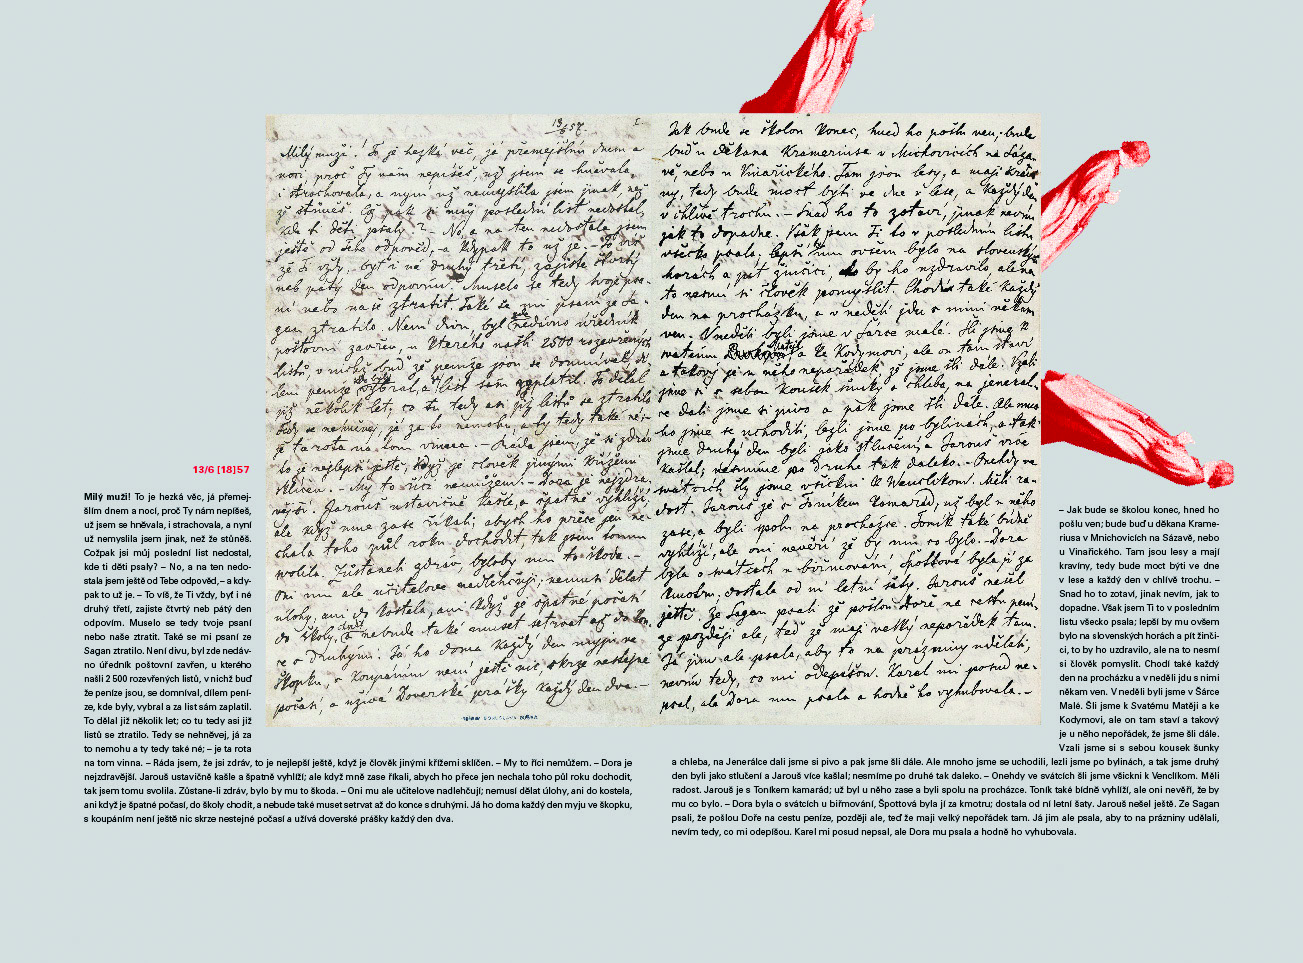 13/6 57.
1.
Milý muži! To je hezká věc, já přemejšlím dnem a
nocí, proč Ty nám nepíšeš, už jsem se hněvala,
i strachovala, a nyní už nemyslila jsem jinak než
že stůněš. Cožpak jsi můj poslední list nedostal,
kde ti děti psaly? – No, a na ten nedostala jsem
ještě od Tebe odpověd, – a kdypak to už je. – To víš
že Ti vždy, byť i ne druhý třetí, zajiste čtvrtý
neb pátý den odpovím. Muselo se tedy tvoje psa-
ní nebo naše ztratit. Také se mi psaní ze Sa-
gan ztratilo. Není divu, byl zde nedávno úředník
poštovní zavřen, u kterého našli 2500 rozevřených
listů, v nichž buď že peníze jsou se domníval, dí-
lem peníze, kde byly, vybral, a za list sám zaplatil. To dělal
již několik let; co tu tedy asi již listů se ztratilo
Tedy se nehněvej, já za to nemohu a ty tedy také né; –
je ta rota na tom vinna. – Ráda jsem, že jsi zdráv
to je nejlepší ještě, když je člověk jinými křížemi
sklíčen. – My to říci nemůžem. – Dora je nejzdra-
vější. Jarouš ustavičně kašle, a špatně vyhlíží,
ale když mně zase říkali, abych ho přece jen ne-
chala toho půl roku dochodit, tak jsem tomu
svolila. Zůstane-li zdráv, bylo by mu to škoda. –
Oni mu ale učitelove nadlehčují; nemusí dělat
úlohy, ani do kostela, ani když je špatné počasí
do školy chodit, a nebude také muset setrvat až do kon-
ce s druhými. Já ho doma každý den myju ve
škopku, s koupáním není ještě nic skrze nestejné
počasí, a užívá Doverské prášky každý den dva. –
Jak bude se školou konec, hned ho pošlu ven; bude
buď u děkana Krameriusa v Mnichovicích na Sáza-
vě, nebo u Vinařického. Tam jsou lesy, a mají kraví-
ny, tedy bude moct býti ve dne v lese, a každý den
v chlívě trochu. – Snad ho to zotaví, jinak nevím
jak to dopadne. Však jsem Ti to v posledním listu
všecko psala. lepší by mu ovšem bylo na slovenských
horách a pít žinčici, to by ho uzdravilo, ale na
to nesmí si člověk pomyslit. Chodí také každý
den na procházku, a v neděli jdu s nimi někam
ven. V neděli byli jsme v Šárce malé. Šli jsme k
svatému Matěji a ke Kodymovi, ale on tam staví
a takový je u něho nepořádek, že jsme šli dále. Vzali
jsme si s sebou kousek šunky a chleba, na jenerál-
ce dali jsme si pivo a pak jsme šli dále. Ale mno-
ho jsme se uchodili, lezli jsme po bylinách, a tak
jsme druhý den byli jako stlučení a Jarouš více
kašlal; nesmíme po druhé tak daleko. – Onehdy ve
svátcích šli jsme všickni k Venclíkom. Měli ra-
dost. Jarouš je s Toníkem kamarád; už byl u něho
zase, a byli spolu na procházce. Toník také bídně
vyhlíží, ale oni nevěří, že by mu co bylo. – Dora
byla o svátcích u biřmování, Špottová byla jí za
kmotru; dostala od ní letní šaty. Jarouš nešel
ještě. Ze Sagan psali, že pošlou Doře na cestu pení-
ze později ale, teď že mají velký nepořádek tam.
Já jim ale psala, aby to na prázniny udělali,
nevím tedy, co mi odepíšou. Karel mi posud ne-
psal, ale Dora mu psala a hodně ho vyhubovala. –
13/6 [18]57
Milý muži! To je hezká věc, já přemej-
šlím dnem a nocí, proč Ty nám nepíšeš,
už jsem se hněvala, i strachovala, a nyní
už nemyslila jsem jinak, než že stůněš.
Cožpak jsi můj poslední list nedostal,
kde ti děti psaly? – No, a na ten nedo-
stala jsem ještě od Tebe odpověd, – a kdy-
pak to už je. – To víš, že Ti vždy, byť i né
druhý třetí, zajiste čtvrtý neb pátý den
odpovím. Muselo se tedy tvoje psaní
nebo naše ztratit. Také se mi psaní ze
Sagan ztratilo. Není divu, byl zde nedáv-
no úředník poštovní zavřen, u kterého
našli 2 500 rozevřených listů, v nichž buď
že peníze jsou, se domníval, dílem pení-
ze, kde byly, vybral a za list sám zaplatil.
To dělal již několik let; co tu tedy asi již
listů se ztratilo. Tedy se nehněvej, já za
to nemohu a ty tedy také né; – je ta rota
na tom vinna. – Ráda jsem, že jsi zdráv, to je nejlepší ještě, když je člověk jinými křížemi sklíčen. – My to říci nemůžem. – Dora je
nejzdravější. Jarouš ustavičně kašle a špatně vyhlíží; ale když mně zase říkali, abych ho přece jen nechala toho půl roku dochodit,
tak jsem tomu svolila. Zůstane-li zdráv, bylo by mu to škoda. – Oni mu ale učitelove nadlehčují; nemusí dělat úlohy, ani do kostela,
ani když je špatné počasí, do školy chodit, a nebude také muset setrvat až do konce s druhými. Já ho doma každý den myju ve škopku,
s koupáním není ještě nic skrze nestejné počasí a užívá doverské prášky každý den dva.
– Jak bude se školou konec, hned ho
pošlu ven; bude buď u děkana Krame-
riusa v Mnichovicích na Sázavě, nebo
u Vinařického. Tam jsou lesy a mají
kravíny, tedy bude moct býti ve dne
v lese a každý den v chlívě trochu. –
Snad ho to zotaví, jinak nevím, jak to
dopadne. Však jsem Ti to v posledním
listu všecko psala; lepší by mu ovšem
bylo na slovenských horách a pít žinči-
ci, to by ho uzdravilo, ale na to nesmí
si člověk pomyslit. Chodí také každý
den na procházku a v neděli jdu s nimi
někam ven. V neděli byli jsme v Šárce
Malé. Šli jsme k Svatému Matěji a ke
Kodymovi, ale on tam staví a takový
je u něho nepořádek, že jsme šli dále.
Vzali jsme si s sebou kousek šunky
a chleba, na Jenerálce dali jsme si pivo a pak jsme šli dále. Ale mnoho jsme se uchodili, lezli jsme po bylinách, a tak jsme druhý
den byli jako stlučení a Jarouš více kašlal; nesmíme po druhé tak daleko. – Onehdy ve svátcích šli jsme všickni k Venclíkom. Měli
radost. Jarouš je s Toníkem kamarád; už byl u něho zase a byli spolu na procházce. Toník také bídně vyhlíží, ale oni nevěří, že by
mu co bylo. – Dora byla o svátcích u biřmování, Špottová byla jí za kmotru; dostala od ní letní šaty. Jarouš nešel ještě. Ze Sagan
psali, že pošlou Doře na cestu peníze, později ale, teď že maji velký nepořádek tam. Já jim ale psala, aby to na prázniny udělali,
nevím tedy, co mi odepíšou. Karel mi posud nepsal, ale Dora mu psala a hodně ho vyhubovala.